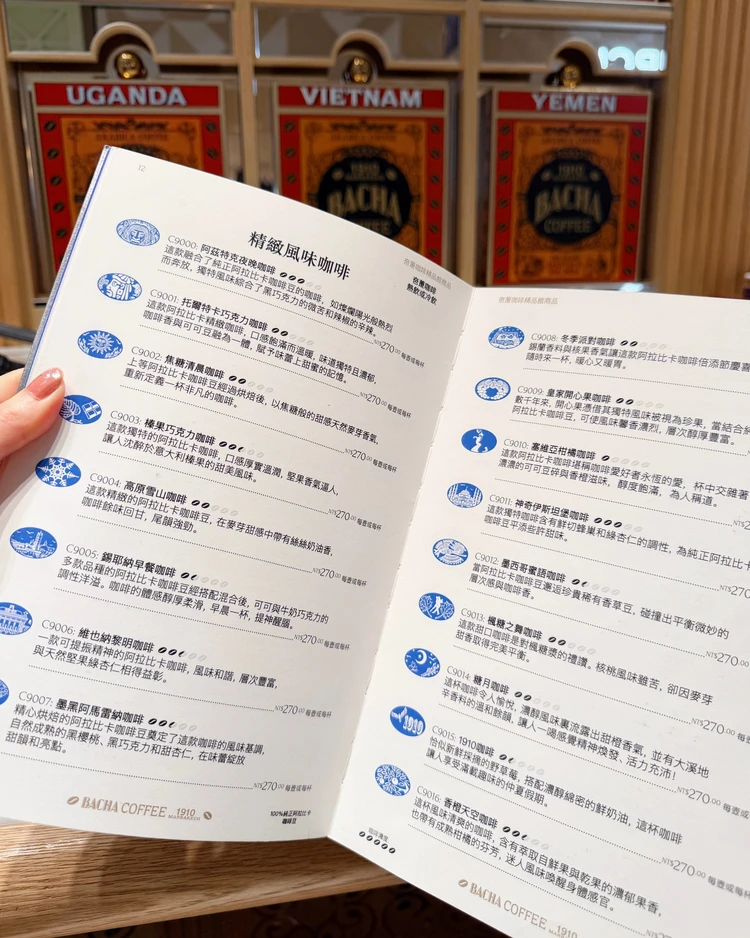 UGANDA
VIETNAM
YEMEN
1910
BACHA
COFFEE
1910
BACHA
COFFEE
12
精緻風味咖啡
夿萐咖啡精品館商品
夿萐咖啡
熱飲或冷飲
C9000: 阿茲特克夜晚咖啡
這款融合了純正阿拉比卡咖啡豆的咖啡, 如燦爛陽光般熱烈
而奔放, 獨特風味綜合了黑巧克力的微苦和辣椒的辛辣。
NT$270.00 每壺或每杯
C9001: 托爾特卡巧克力咖啡
這款阿拉比卡精緻咖啡, 口感飽滿而溫暖, 味道獨特且濃郁,
咖啡香與可可豆融為一體, 賦予味蕾上甜蜜的記憶。
NT$270.00 每壺或每杯
C9002: 焦糖清晨咖啡
上等阿拉比卡咖啡豆經過烘焙後, 以焦糖般的甜感天然麥芽香氣,
重新定義一杯非凡的咖啡。
NT$270.00 每壺或每杯
C9003: 榛果巧克力咖啡
這款獨特的阿拉比卡咖啡, 口感厚實溫潤, 堅果香氣逼人,
讓人沈醉於意大利榛果的甜美風味。
NT$270.00 每壺或每杯
C9004: 高原雪山咖啡
這款精緻的阿拉比卡咖啡豆, 在麥芽甜感中帶有絲絲奶油香,
咖啡餘味回甘, 尾韻強勁。
NT$270.00 每壺或每杯
C9005: 錫耶納早餐咖啡
多款品種的阿拉比卡咖啡豆經搭配混合後, 可可與牛奶巧克力的
調性洋溢。咖啡的體感醇厚柔滑, 早晨一杯, 提神醒腦。
NT$270.00 每壺或每杯
C9006: 維也納黎明咖啡
一款可提振精神的阿拉比卡咖啡, 風味和諧, 層次豐富,
與天然堅果綠杏仁相得益彰。
NT$270.00 每壺或每杯
C9007: 墨黑阿馬雷納咖啡
精心烘焙的阿拉比卡咖啡豆奠定了這款咖啡的風味基調,
自然成熟的黑櫻桃、黑巧克力和甜杏仁, 在味蕾綻放
甜韻和亮點。
NT$270.00 每壺或每杯
BACHA COFFEE 1910
MARRAKECH
100%純正阿拉比卡
咖啡豆
夿萐咖啡精品館商品
C9008: 冬季派對咖啡
錫蘭香料與核果香氣讓這款阿拉比卡咖啡倍添節慶喜
隨時來一杯, 暖心又暖胃。
C9009: 皇家開心果咖啡
數千年來, 開心果憑借其獨特風味被視為珍果。當結合純
阿拉比卡咖啡豆, 可使風味馨香濃烈, 層次醇厚豐富。
C9010: 塞維亞柑橘咖啡
這款阿拉比卡咖啡堪稱咖啡愛好者永恆的愛, 杯中交雜著
濃濃的可可豆碎與香橙滋味, 醇度飽滿, 為人稱道。
NT$2
C9011: 神奇伊斯坦堡咖啡
這款獨特咖啡含有鮮切蜂巢和綠杏仁的調性, 為純正阿拉比卡
咖啡豆平添些許甜味。
NT$27
C9012: 墨西哥蜜語咖啡
當阿拉比卡咖啡豆邂逅珍貴稀有香草豆, 碰撞出平衡微妙的
層次感與咖啡香。
NT$270
C9013: 楓糖之舞咖啡
這款甜口咖啡是對楓糖漿的禮讚。核桃風味雖苦, 卻因麥芽
甜香取得完美平衡。
NT$270.00
C9014: 糖月咖啡
這杯咖啡令人愉悅, 濃醇風味裏流露出甜橙香氣, 並有大溪地
辛香料的溫和餘韻, 讓人一喝感覺精神煥發、活力充沛!
NT$270.00
C9015: 1910咖啡
恰似新鮮採摘的野草莓, 搭配濃醇綿密的鮮奶油, 這杯咖啡
讓人享受滿載趣味的仲夏假期。
NT$270.00 每壺或
C9016: 香橙天空咖啡
這杯風味清爽的咖啡, 含有萃取自鮮果與乾果的濃郁果香,
也帶有成熟柑橘的芬芳, 迷人風味喚醒身體感官。
NT$270.00 每壺或每
咖啡濃度
BACHA COFFEE 1910